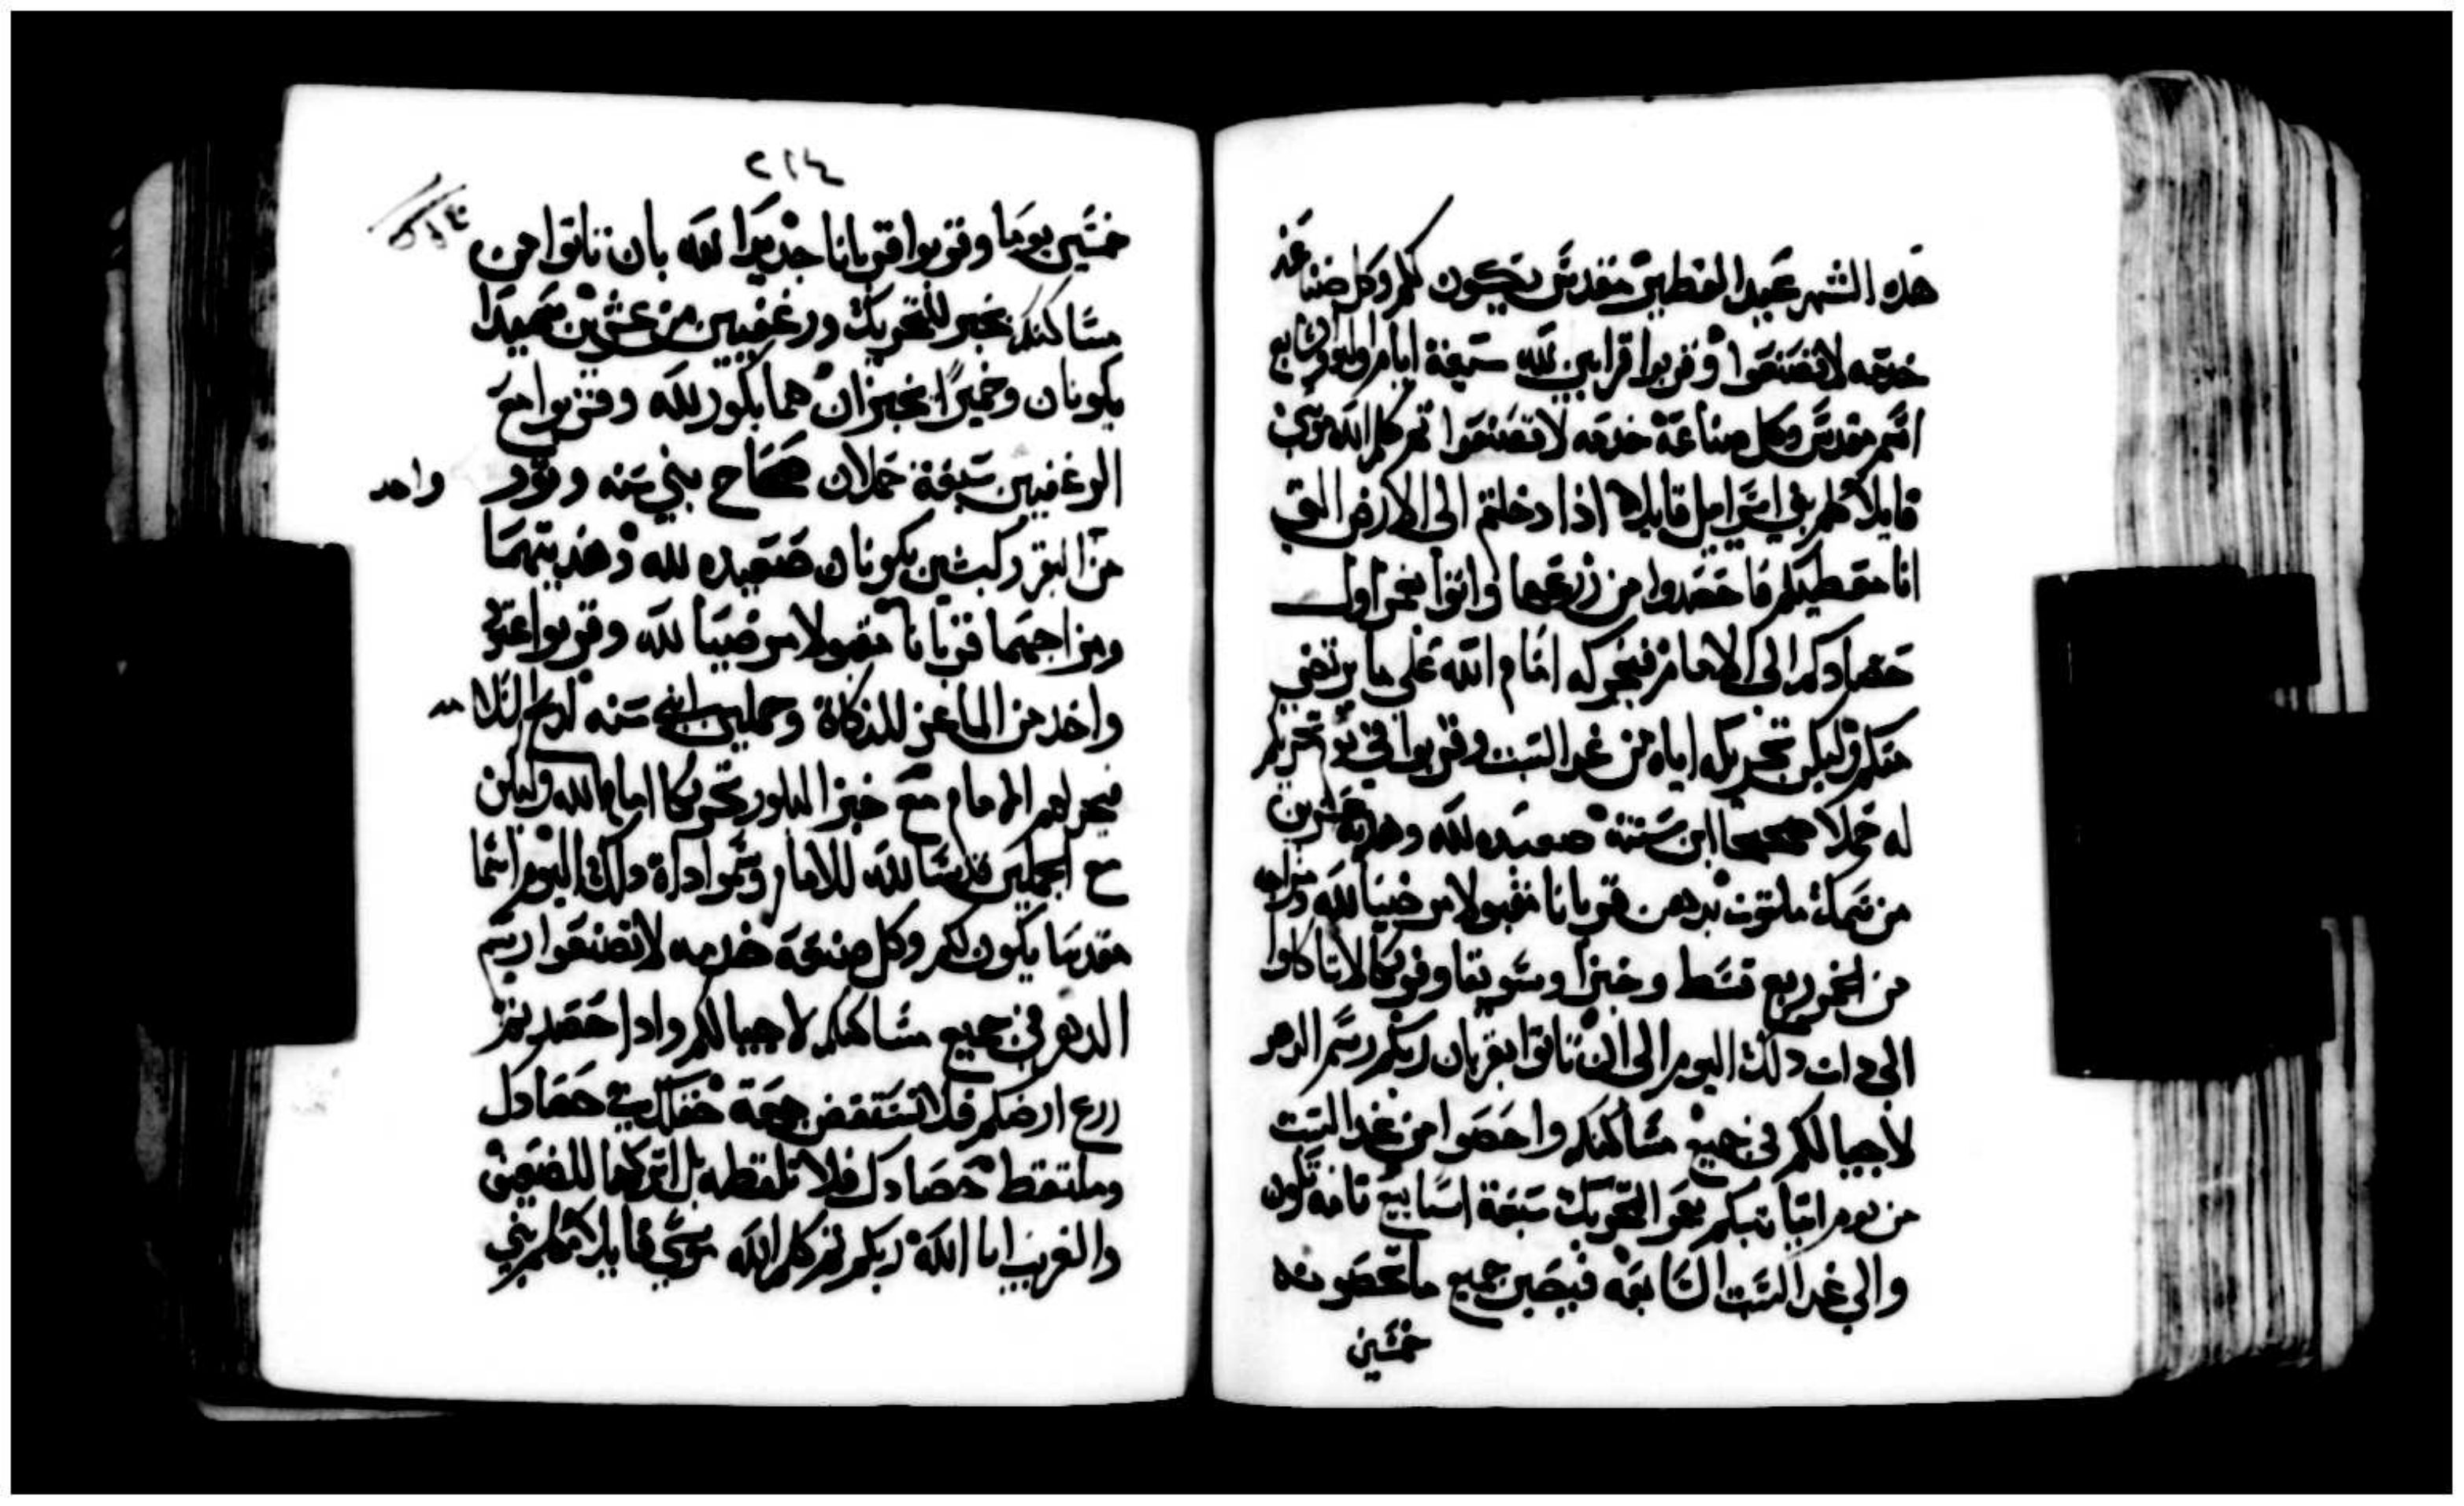 هذه الشهر عيد الفطير مقدس يكون لكم وكل صناعة
خدمه لا تصنعوا وقربوا قرابين لله سبعة ايام واليوم السابع
اسم مقدس وكل صناعة خدمه لا تصنعوا ثم كلم الله موسى
قايلا كلم بني اسرايل قايلا اذا دخلتم الى الارض التي
انا معطيكم فاحصدوا من زرعها واتوا بغمر اول
حصادكم الى الامام فيحركه امام الله على ما يرتضي
منكم وليكن تحريكه اياه من غد السبت وقربوا في يوم تحريكم
له حملا صحيحا ابن سنته صعيده لله وهديته عشرين
من سمك ملتوت بدهن قربانا مقبولا مرضيا لله ومزاجه
من الخمر ربع قسط وخبزا وسويقا وفريكا لا تاكلوا
الى ذات ذلك اليوم الى ان تاتوا بقربان ربكم رسم الدهر
لاجيالكم في جميع مساكنكم واحصوا من غد السبت
من يوم اتيانكم بغمر التحريك سبعة اسابيع تامه تكون
والى غد السبت السابعه فيصير جميع ما تحصونه
خمسين
٢١٤
خمسين يوما وقربوا قربانا جديدا لله بان تاتوا من
مساكنكم بخبز للتحريك ورغفيين من عشرين سميدا
يكونان وخميرا يخبزان هما بكور لله وقربوا مع
الرغفيين سبعة حملان صحاح بني سنه وثور واحد
من البقر وكبشين يكونان صعيده لله وهديتهما
ومزاجهما قربانا مقبولا مرضيا لله وقربوا عتود
واحد من الماعز للذكاة وحملين ابني سنه لذبح السلامه
فيحركهم الامام مع خبز البكور تحريكا امام الله وليكن
مع الحملين قدسا لله للامام وسموا ذاة ذلك اليوم اسما
مقدسا يكون لكم وكل صنعة خدمه لا تصنعوا رسم
الدهر في جميع مساكنكم لاجيالكم واذا حصدتم
زرع ارضكم فلا تستقض جهة حقلك في حصادك
وملتقط حصادك فلا تلقطه بل اتركها للضعيف
والغريب انا الله ربكم ثم كلم الله موسى قايلا كلم بني